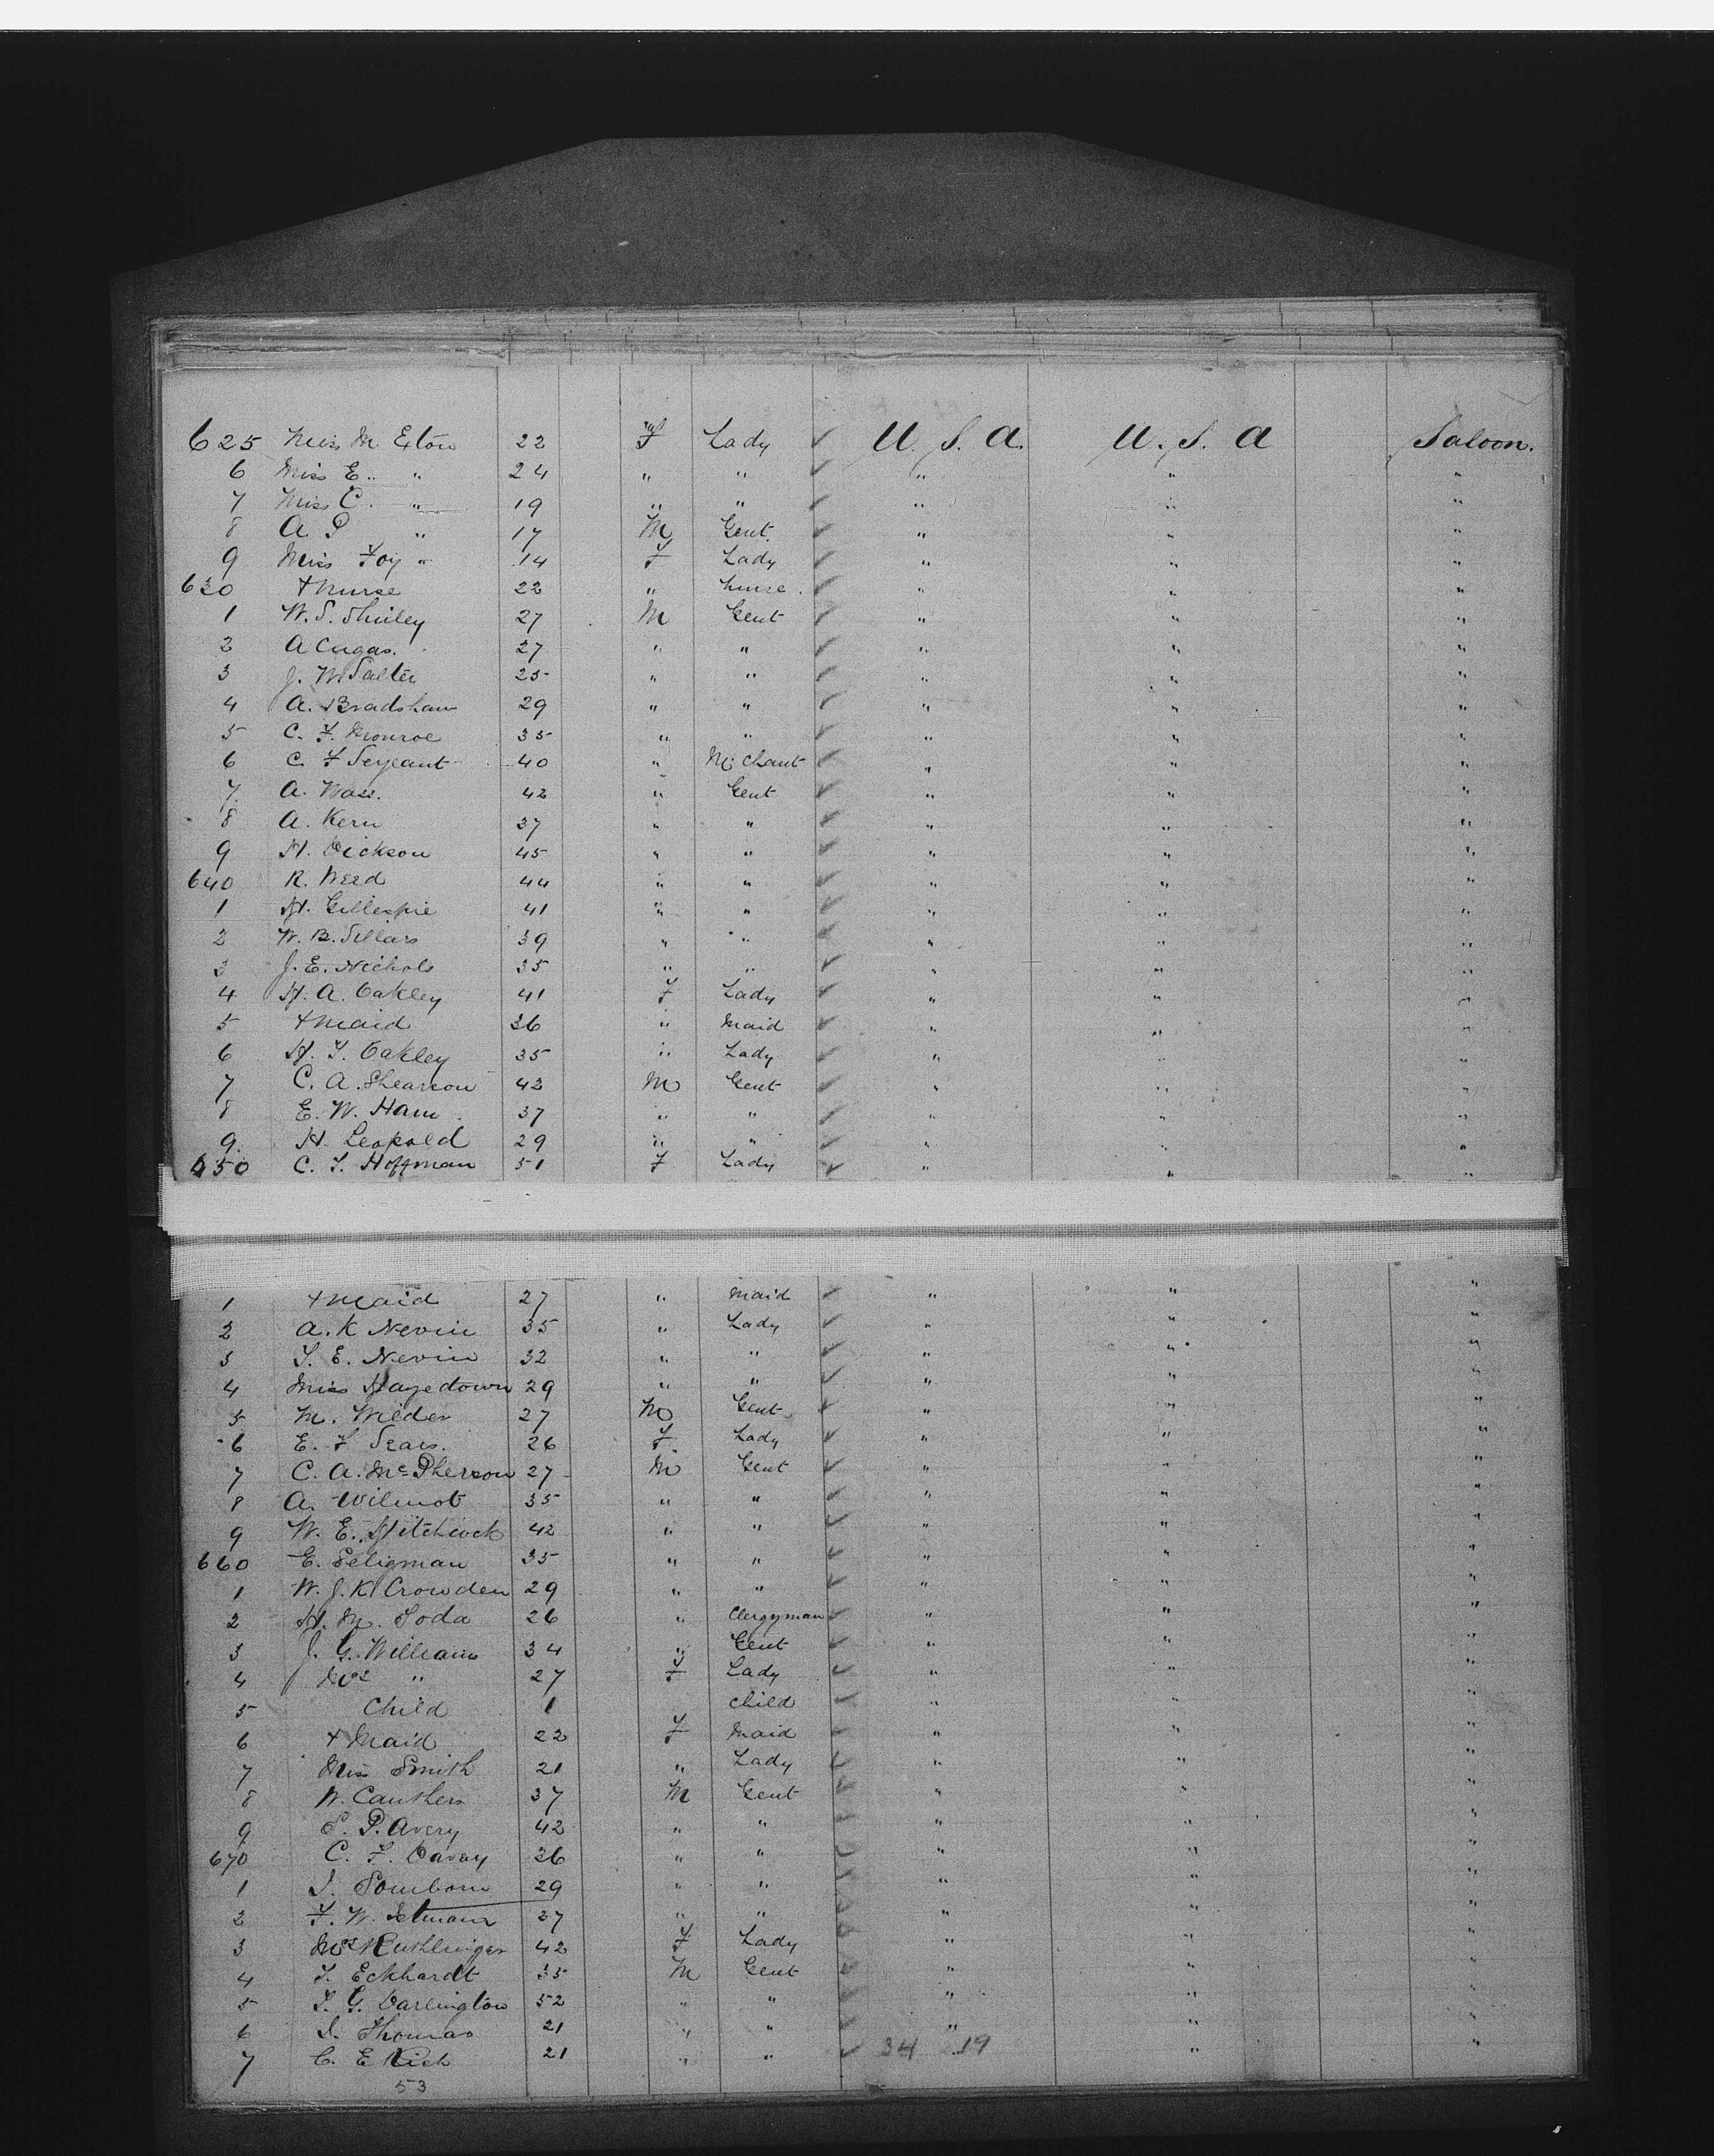 625 Miss M. Eton 22 F Lady ✓ U. S. A. U. S. A Saloon.
6 Miss E. " 24 " " ✓ " " "
7 Miss C. " 19 " " ✓ " " "
8 A P " 17 M Gent. ✓ " " "
9 Miss Foy " 14 F Lady ✓ " " "
630 + nurse 22 " nurse ✓ " " "
1 W. S. Shirley 27 M Gent ✓ " " "
2 A 27 " " ✓ " " "
3 J. W. Salter 25 " " ✓ " " "
4 A. Bradshaw 29 " " ✓ " " "
5 C. F. Monroe 35 " " ✓ " " "
6 C. F Serjeant 40 " Mchant ✓ " " "
7 A. 42 " Gent ✓ " " "
8 A. Kern 37 " " ✓ " " "
9 H. Dickson 45 " " ✓ " " "
640 R. 44 " " ✓ " " "
1 H. Gillespie 41 " " ✓ " " "
2 W. B. Sellars 39 " " ✓ " " "
3 J. E. Nichols 35 " " ✓ " " "
4 H. A. Oakley 41 F Lady ✓ " " "
5 + maid 36 " maid ✓ " " "
6 H. T. Oakley 35 " Lady ✓ " " "
7 C. A. Shearson 42 M Gent ✓ " " "
8 E. W. Ham 37 " " ✓ " " "
9 H. Leopold 29 " " ✓ " " "
650 C. T. Hoffman 51 F Lady ✓ " " "
1 + maid 27 " maid ✓ " " "
2 A. K Nevin 35 " Lady ✓ " " "
3 T. E. Nevin 32 " " ✓ " " "
4 Miss Hagedown 29 " " ✓ " " "
5 M. Wilder 27 M Gent ✓ " " "
6 E. F Sears. 26 F Lady ✓ " " "
7 C. A. McPherson 27 M Gent ✓ " " "
8 A. Wilmot 35 " " ✓ " " "
9 W. E. Hitchcock 42 " " ✓ " " "
660 E. Seligman 35 " " ✓ " " "
1 W. J. K Crowden 29 " " ✓ " " "
2 H. M. Soda 26 " Clergyman ✓ " " "
3 J. G. Williams 34 " Gent ✓ " " "
4 Mrs " 27 F Lady ✓ " " "
5 Child 1 child ✓ " " "
6 + Maid 22 F maid ✓ " " "
7 Miss Smith 21 " Lady ✓ " " "
8 W. Cauthers 37 M Gent ✓ " " "
9 S. P. Avery 42 " " ✓ " " "
670 C. F. 36 " " ✓ " " "
1 Sombom 29 " " ✓ " " "
2 F. W. 37 " " ✓ " " "
3 Mrs 42 F Lady ✓ " " "
4 T. Eckhardt 35 M Gent ✓ " " "
5 T. G. Darlington 52 " " ✓ " " "
6 Thomas 21 " " ✓ " " "
7 C. E Rich 21 " " ✓ 34 19 " "
53